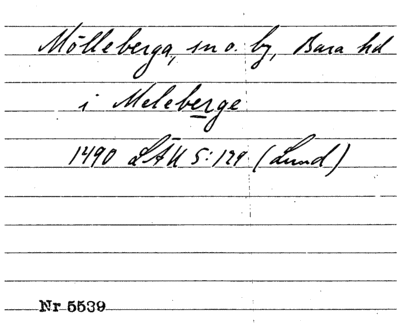 Mölleberga, sn o. by, Bara hd
i Meleberge
1490 LÄU 5:129 (Lund)
Nr 5539